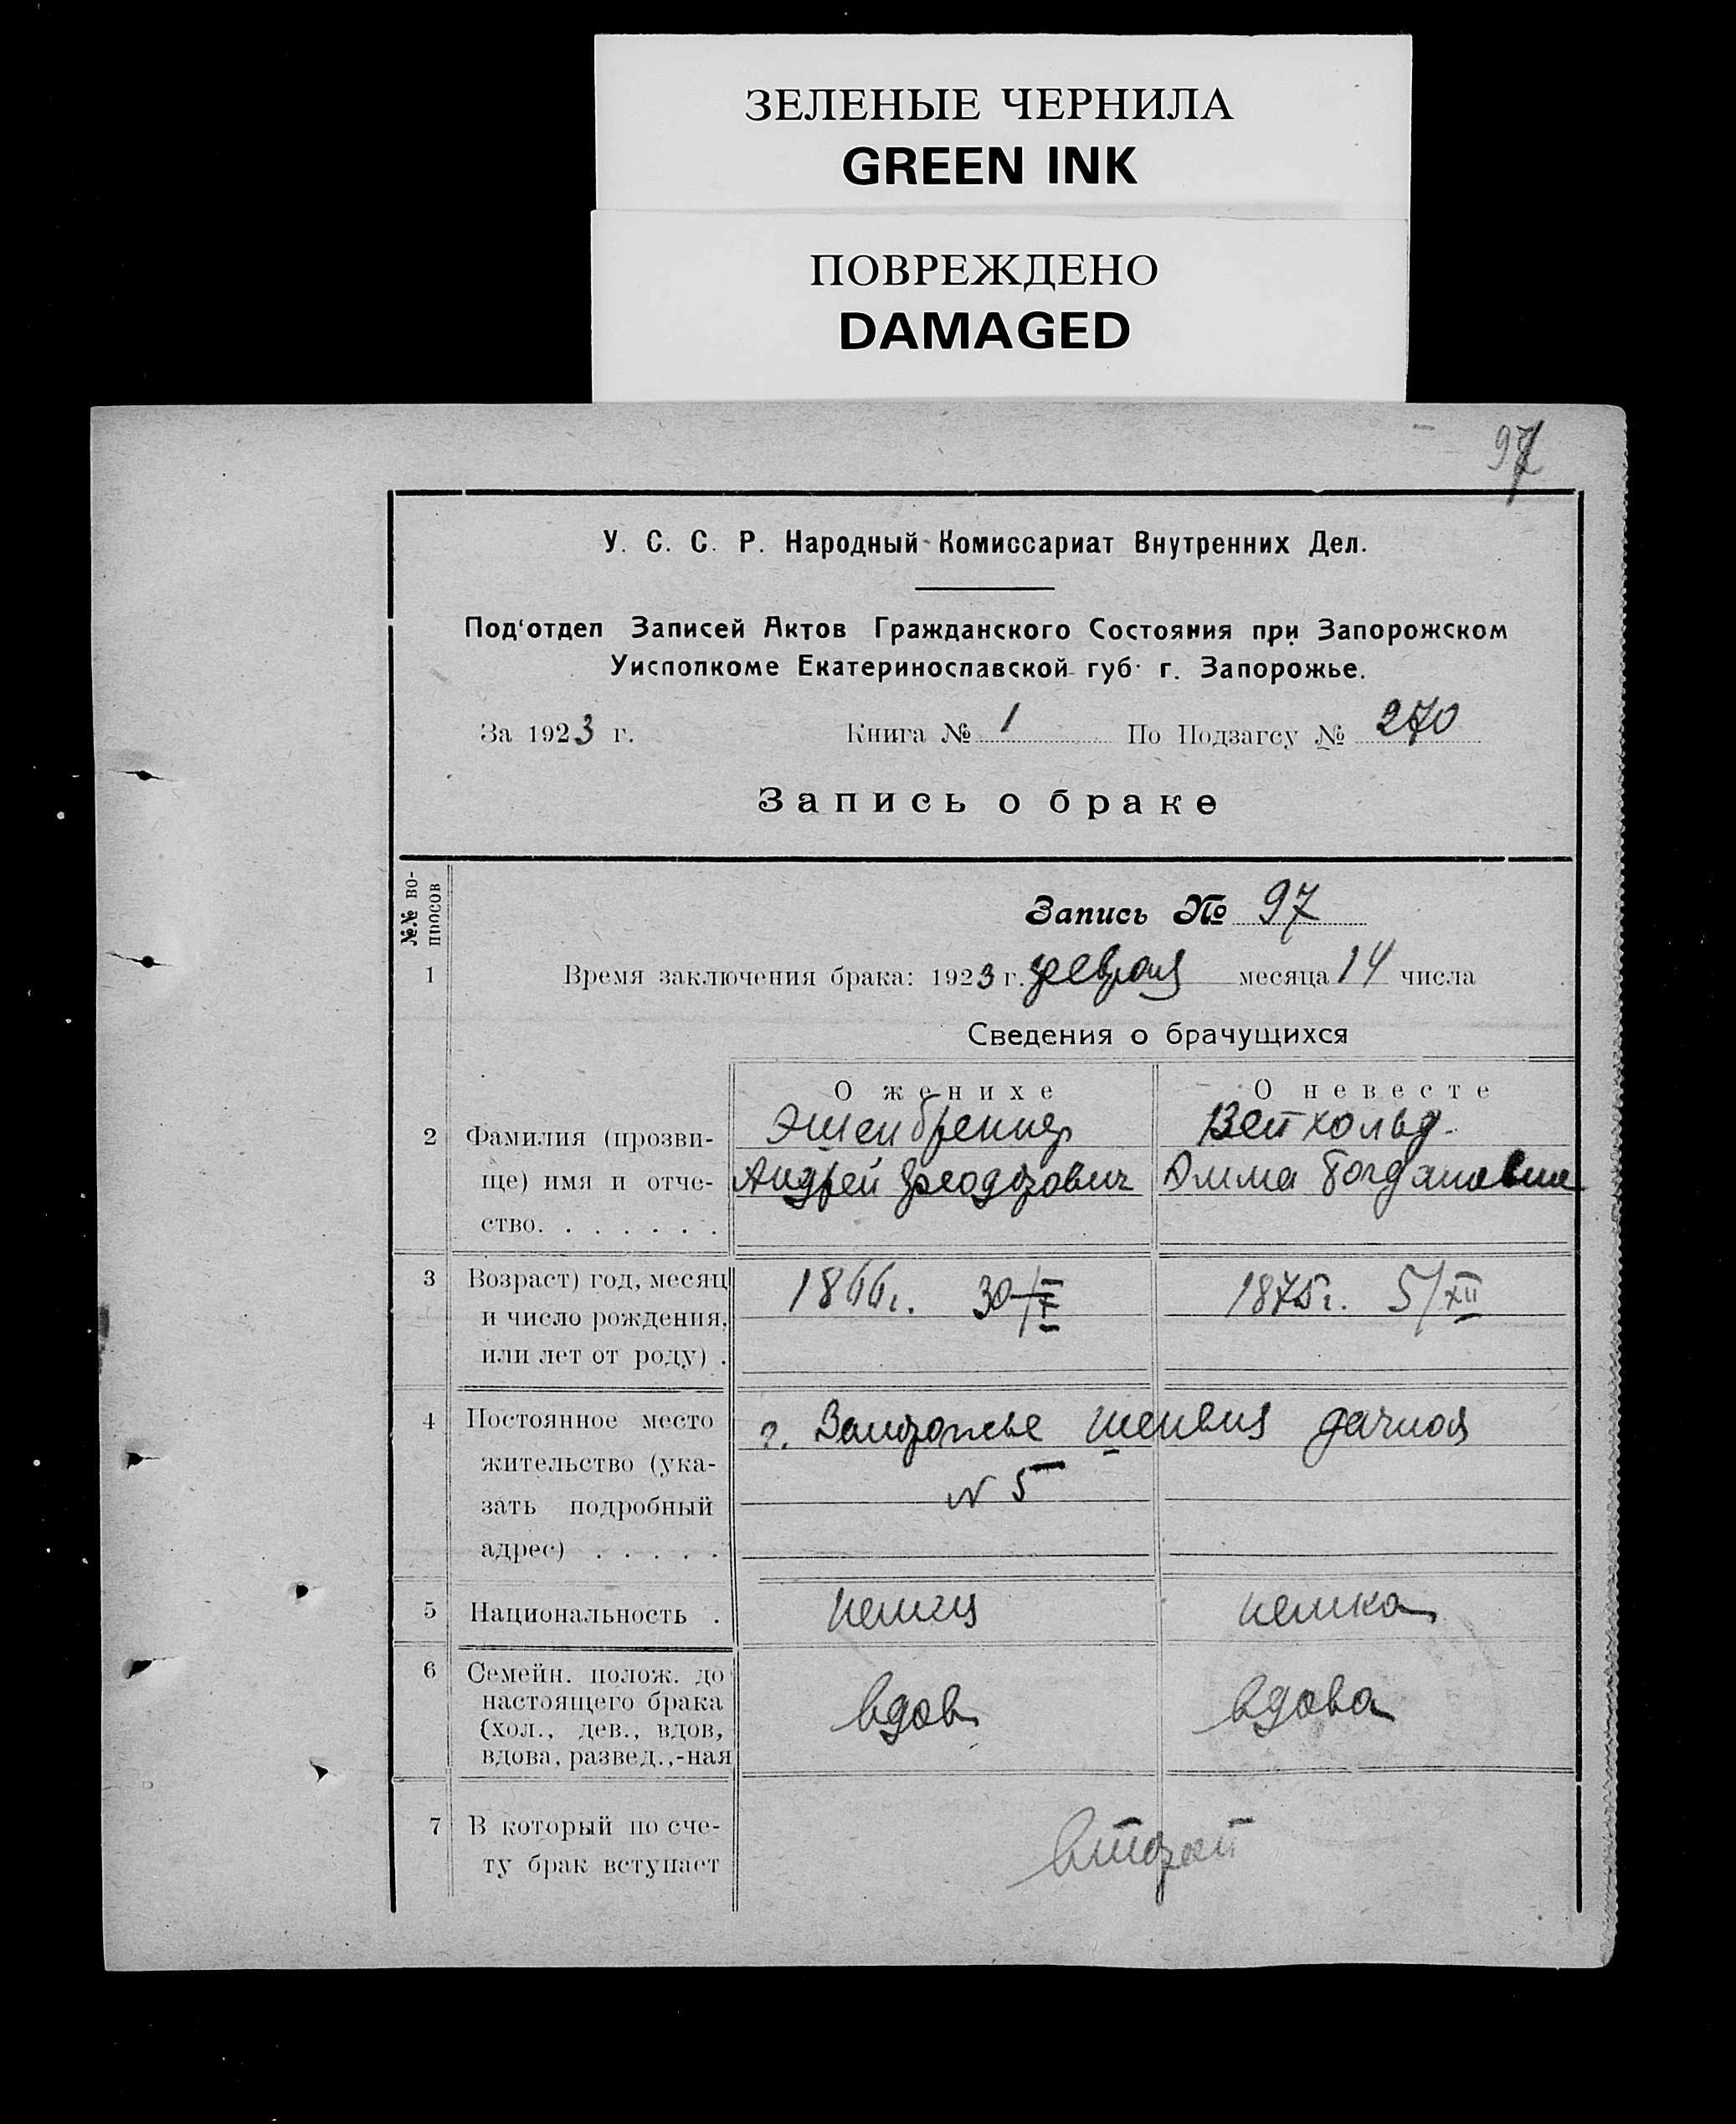 ЗЕЛЕНЫЕ ЧЕРНИЛА
GREEN INK
ПОВРЕЖДЕНО
DAMAGED
97
У. С. С. Р. Народный Комиссариат Внутренних Дел.
Под'отдел Записей Актов Гражданского Состояния при Запорожском
Уисполкоме Екатеринославской губ. г. Запорожье.
За 1923 г. Книга № 1 По Подзагсу № 270
Запись о браке
№.№ во-
просов
Запись № 97
1 Время заключения брака: 1923 г. февраля месяца 14 числа
Сведения о брачущихся
О женихе О невесте
2 Фамилия (прозви- Эшенбреннер Вейхольд
ще) имя и отче- Андрей Феодорович Эмма Богдановна
ство. . . . . . .
3 Возраст) год, месяц 1866 г. 30/X 1875 г. 5/XII
и число рождения,
или лет от роду) .
4 Постоянное место г. Запорожье Шенвиз дачная
жительство (ука- N 5
зать подробный
адрес) . . . . .
5 Национальность . немец немка
6 Семейн. полож. до
настоящего брака
(хол., дев., вдов, вдов вдова
вдова, развед.,-ная
7 В который по сче- второй
ту брак вступает